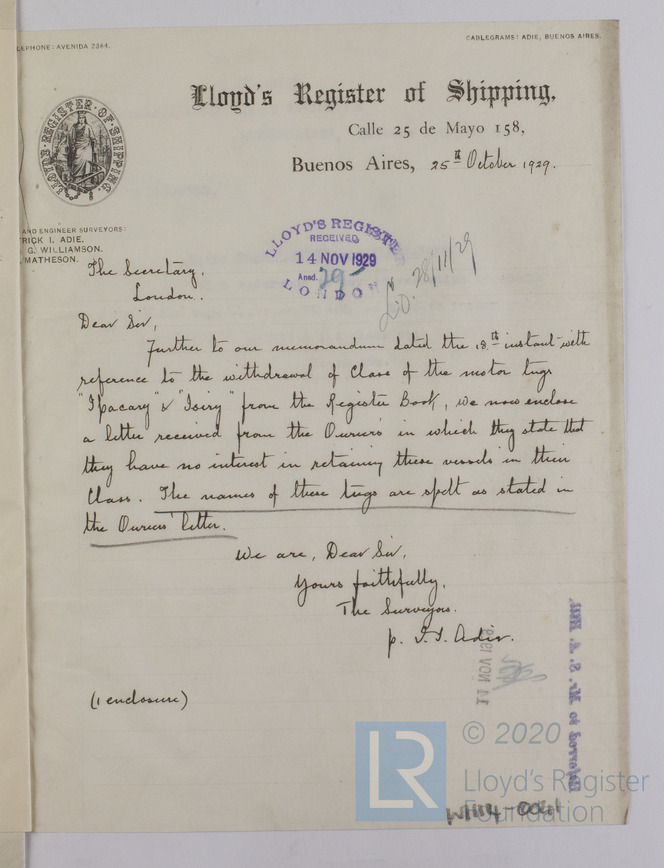 LEPHONE: AVENIDA 2364.
CABLEGRAMS: ADIE, BUENOS AIRES.
Lloyd's Register of Shipping,
Calle 25 de Mayo 158,
Buenos Aires, 25th October 1929.
LLOYD'S REGISTER OF SHIPPING.
AND ENGINEER SURVEYORS:
RICK I. ADIE.
G. WILLIAMSON.
MATHESON.
LLOYD'S REGISTER
RECEIVED
14 NOV 1929
Ansd. 29
LONDON
28/11/29
The Secretary,
London.
Dear Sir,
Further to our memorandum dated the 18th instant with
reference to the withdrawal of Class of the motor tugs
"Ipacary" & "Isiry" from the Register Book, we now enclose
a letter received from the Owners in which they state that
they have no interest in retaining these vessels in their
Class. The names of these tugs are spelt as stated in
the Owners' letter.
We are, Dear Sir,
Yours faithfully,
The Surveyors.
p. I. I. Adie.
11 NOV 1929
(1 enclosure)
LR
© 2020
Lloyd's Register
Foundation
W114-0041